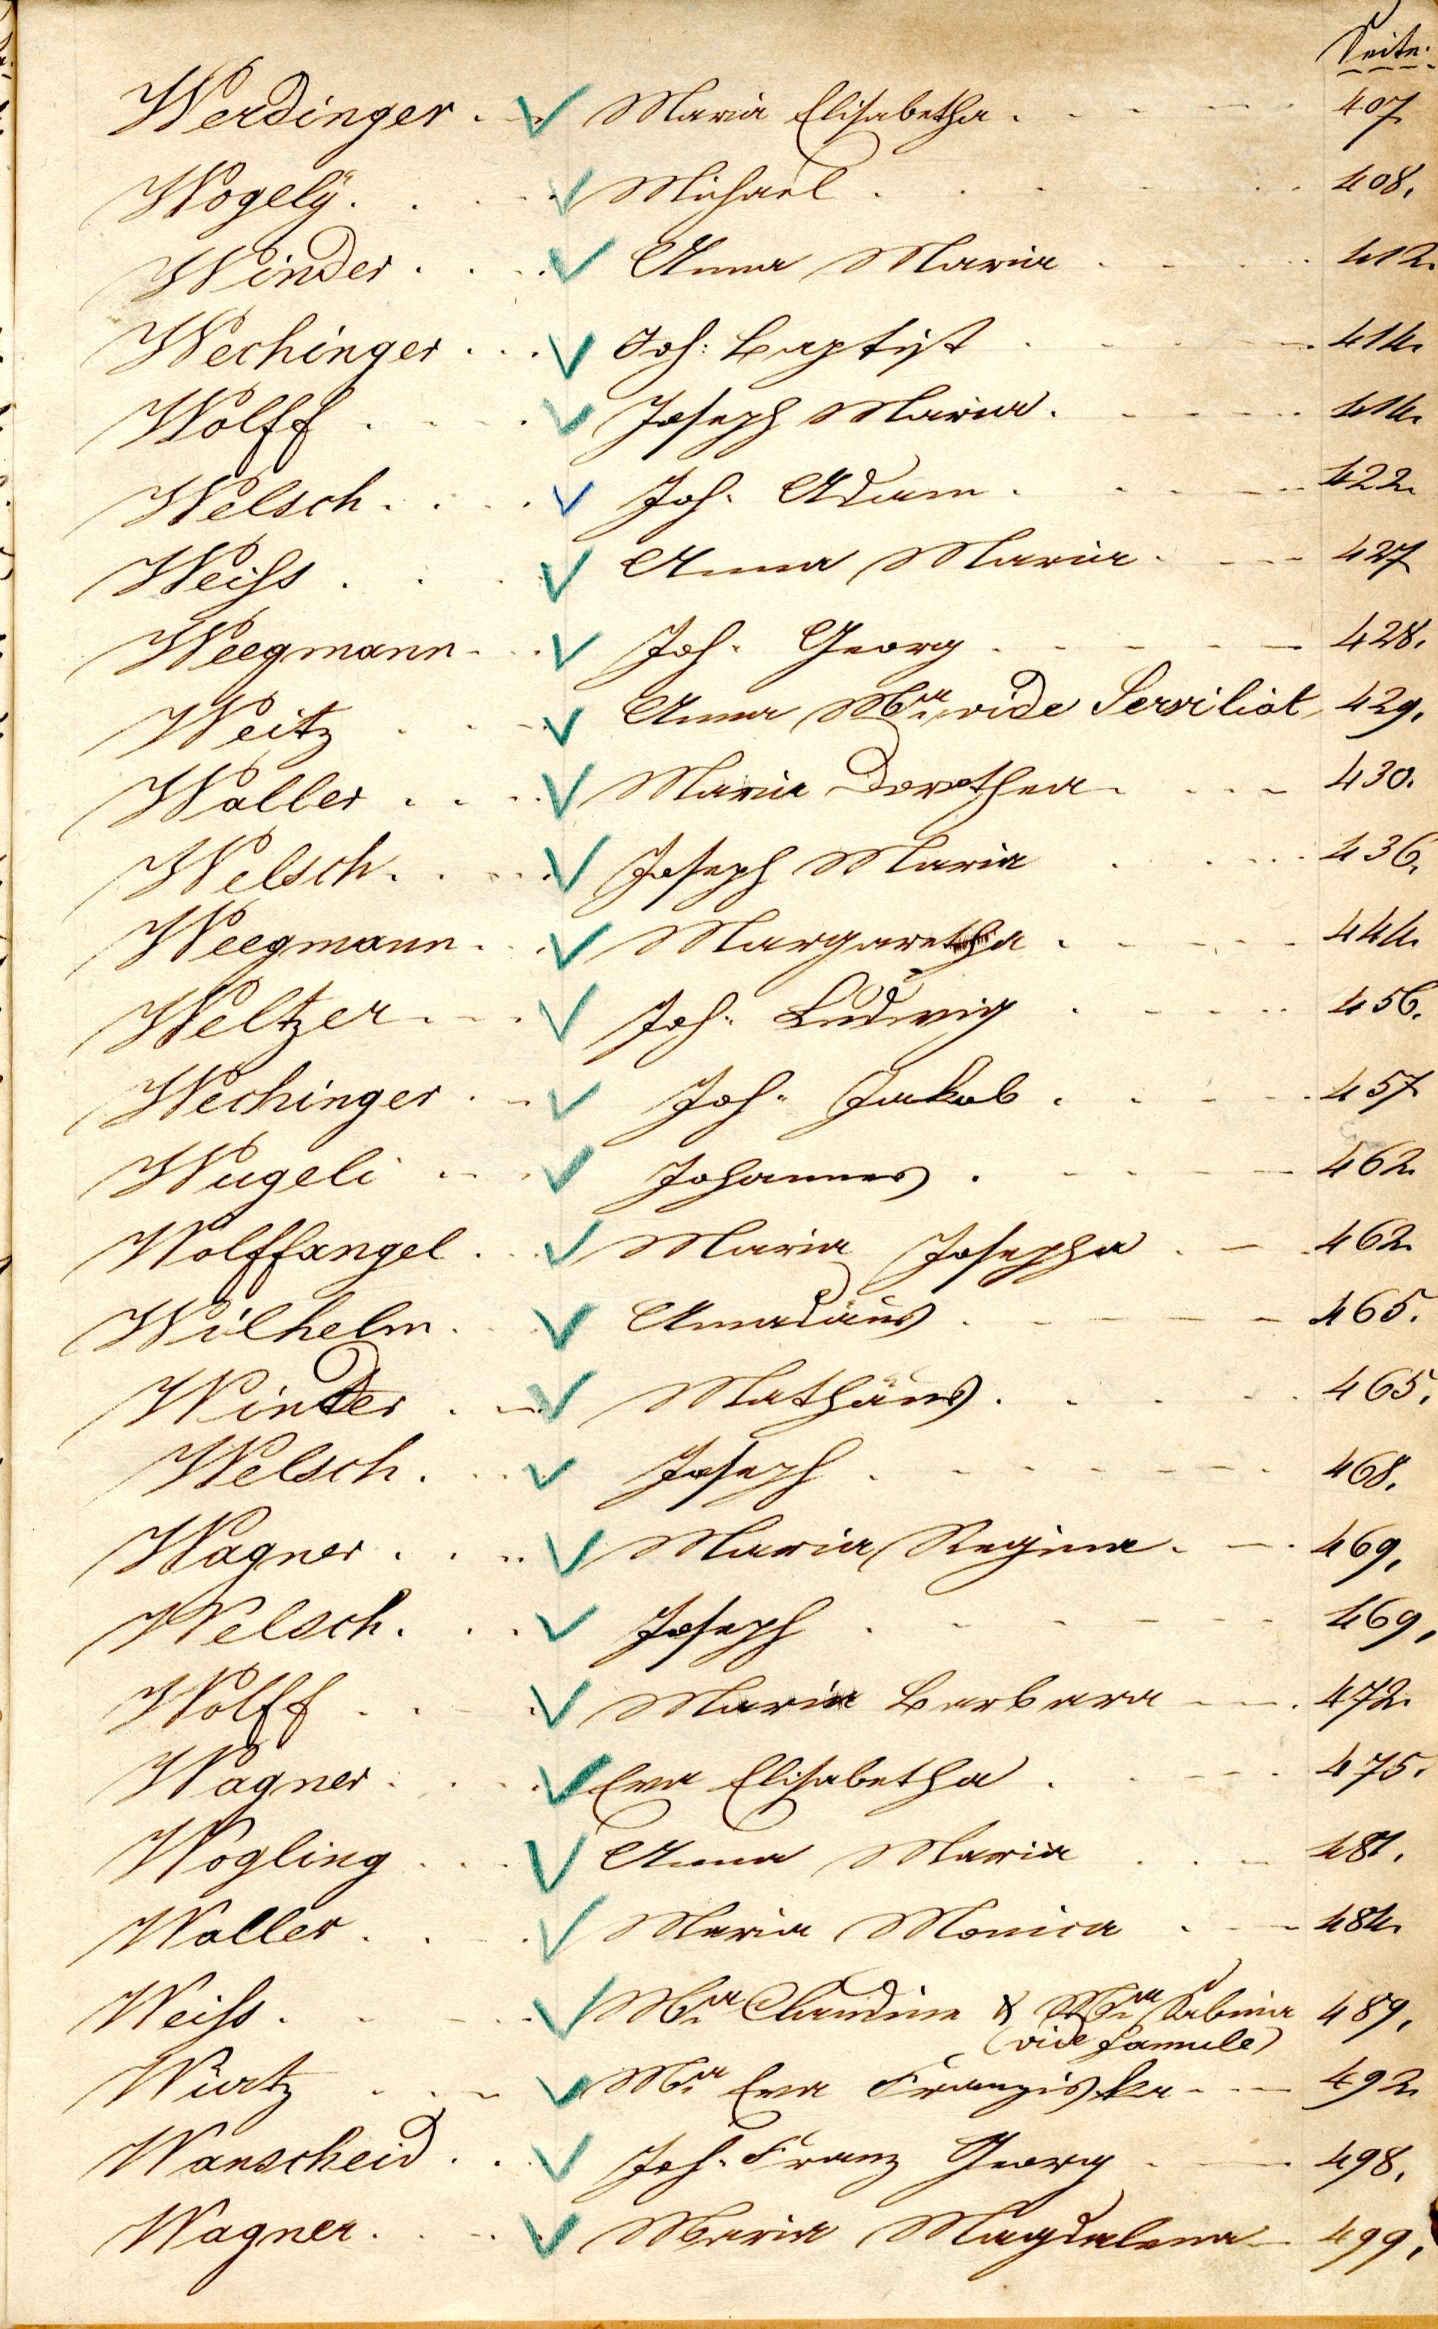 Seite.
Werdinger . Maria Elisabetha . 407
Wögelÿ . Michael . 408.
Winder . Anna Maria 412.
Wechinger . Joh: Baptist 414.
Wolff . Joseph Maria . 414.
Welsch . Joh. Adam . 422.
Weiss . Anna Maria . 427
Weegmann . Joh. Georg . 428.
Weitz . Anna Mra, vide Serviliat, 429.
Waller . Maria Dorothea . 430.
Welsch . Joseph Maria 436.
Weegmann . Margaretha . 444.
Weltzer . Joh. Ludwig 456.
Wechinger . Joh. Jakob . 457
Wugeli Johannes . 462
Wolffangel . Maria Josepha . 462.
Wilhelm . Amadäus . 465.
Winder . Mathäus . 465.
Welsch . Joseph . 468.
Wagner . Maria Regina . 469.
Welsch . Joseph . 469.
Wolff . Maria Barbara 472.
Wagner . Eva Elisabetha . 475.
Wogling . Anna Maria 481.
Waller . Maria Monica 484.
Weiss . Mra Claudina & Mra Sabina 489.
(vide famule)
Würtz . Mra Eva Franziska 492.
Wanscheid . Joh. Franz Georg 498.
Wagner . Maria Magdalena 499.